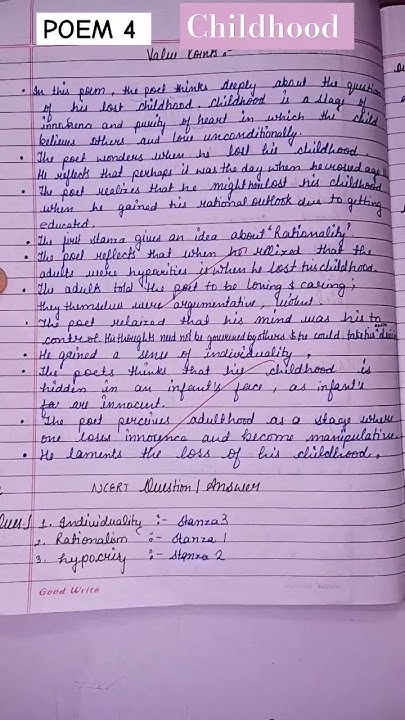 POEM 4
Childhood
Value Points :-
• In this poem, the poet thinks deeply about the question
of his lost childhood. Childhood is a stage of
innocence and purity of heart in which the child
believes others and love unconditionally.
• The poet wonders when he lost his childhood.
He reflects that perhaps it was the day when he crossed age 11
• The poet realizes that he might have lost his childhood
when he gained his rational outlook due to getting
educated.
• The first stanza gives an idea about "Rationality".
• The poet reflects that when he relized that the
adults were hyparities is when he lost his childhood.
• The adults told the poet to be loving & caring;
they themselves were argumentative, violent.
• The poet relaized that his mind was his to
control. His thoughts need not be governed by others & he could take his own
• He gained a sense of individuality,
• The poets thinks that his childhood is
hidden in an infant's face, as infant's
are innocent.
• The poet perceives adulthood as a stage where
one loses innocence and become manipulative.
• He laments the loss of his childhood.
NCERT Question / Answer
Ques.1 1. Individuality :- Stanza 3
2. Rationalism :- Stanza 1
3. hypocrisy :- Stanza 2
Good Write